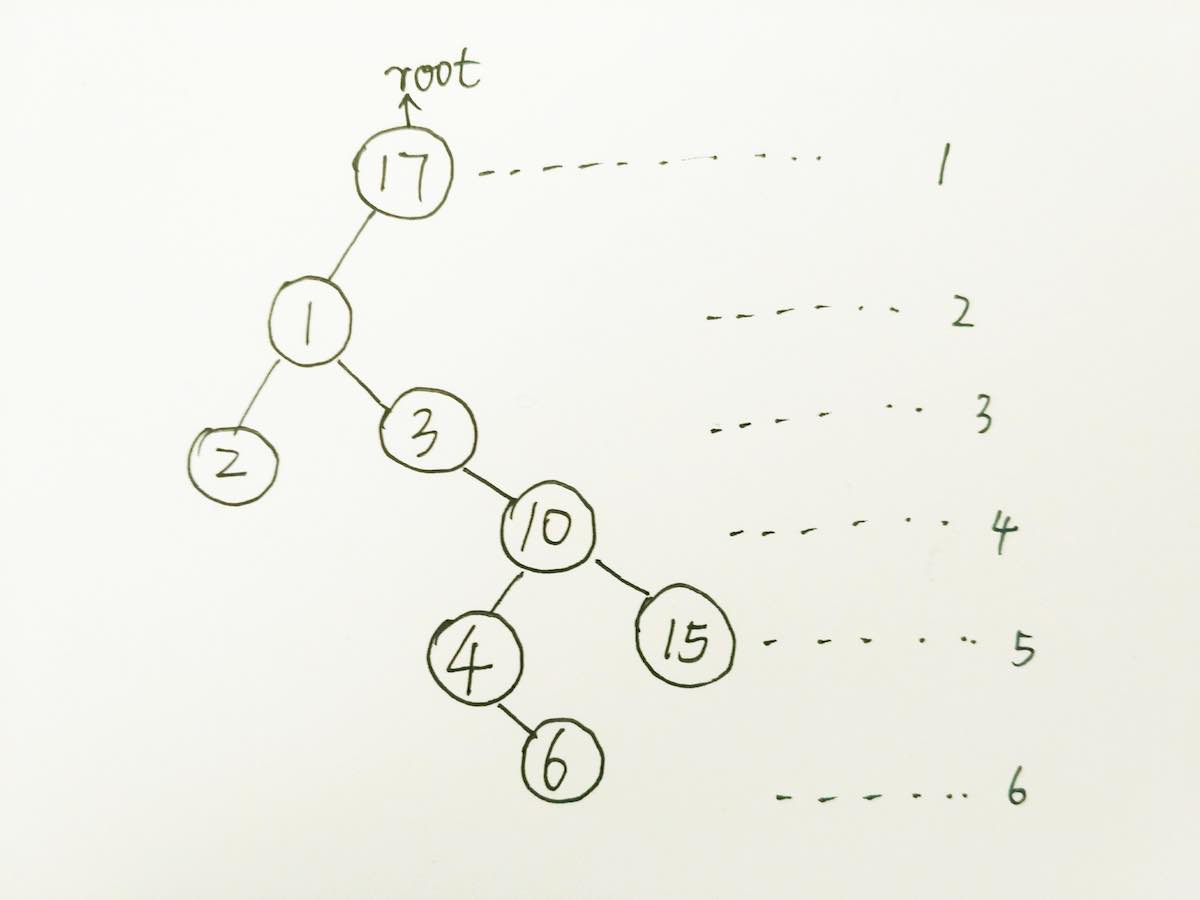 root
17 1
1 2
2 3 3
10 4
4 15 5
6 6